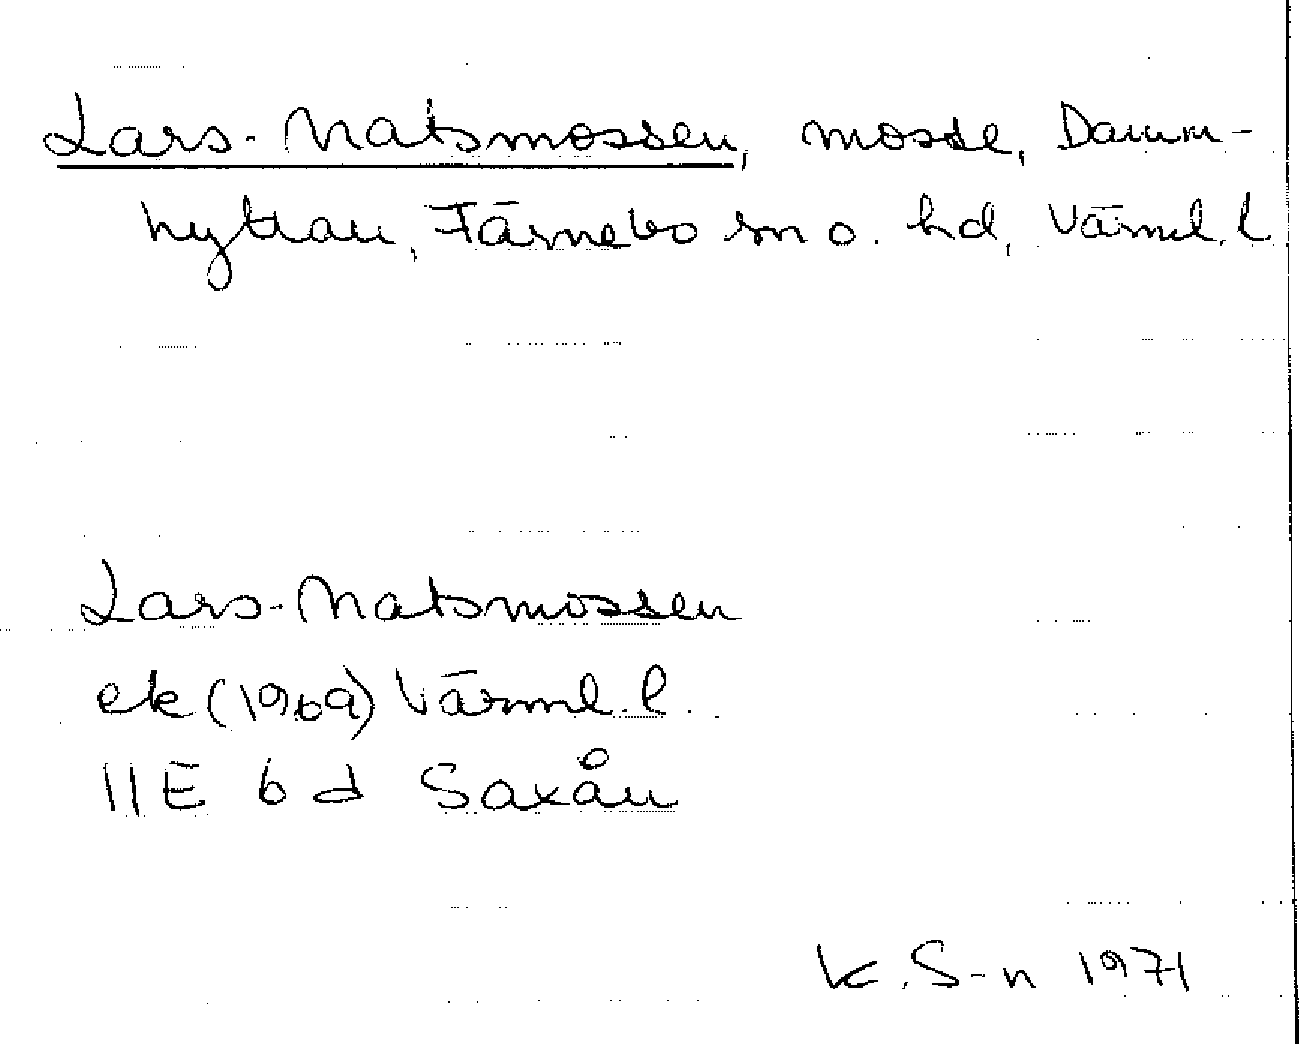 Lars-Matsmossen, mosse, Damm-
hyttan, Färnebo sn o. hd, Värml. l.
Lars-Matsmossen
ek (1969) Värml. l.
11E 6 d Saxån
K. S-n 1971